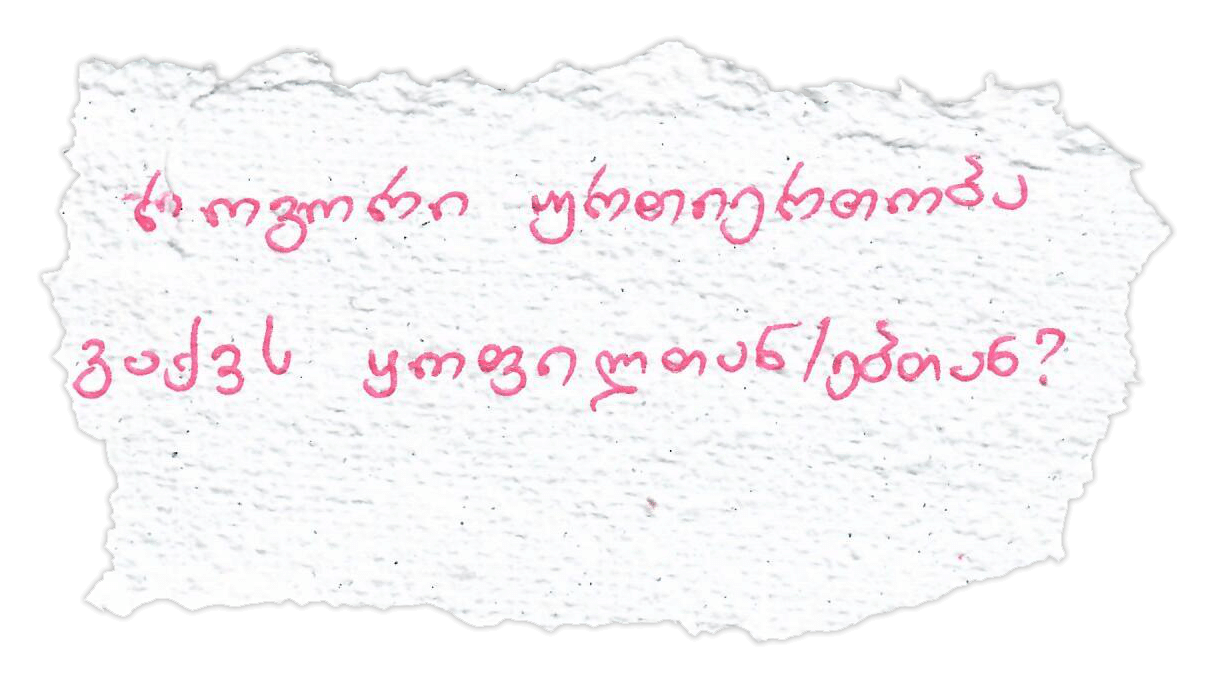 როგორი ურთიერთობა
გაქვს ყოფილთან/ებთან?